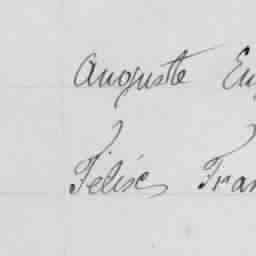 Auguste Eu
Félix Fran